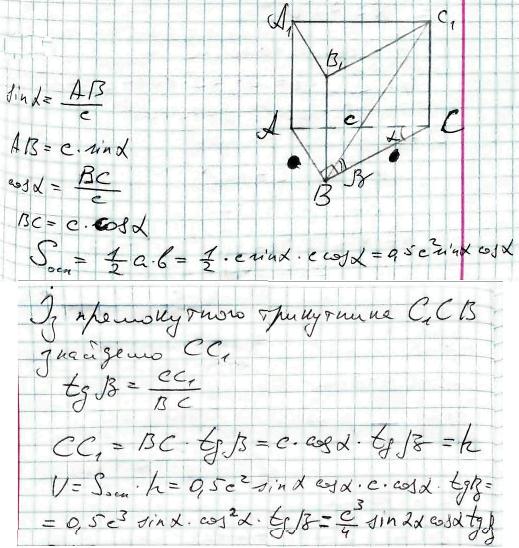 A₁
C₁
B₁
A
c
α
C
B
β
sin α = AB/c
AB = c · sin α
cos α = BC/c
BC = c · cos α
Sосн = 1/2 a · b = 1/2 · c sin α · c cos α = 0,5c² sin α cos α
Із прямокутного трикутника C₁CB
знайдемо CC₁
tg β = CC₁/BC
CC₁ = BC · tg β = c · cos α · tg β = h
V = Sосн · h = 0,5c² sin α cos α · c · cos α · tg β =
= 0,5c³ sin α · cos² α · tg β = c³/4 sin 2α cos α tg β